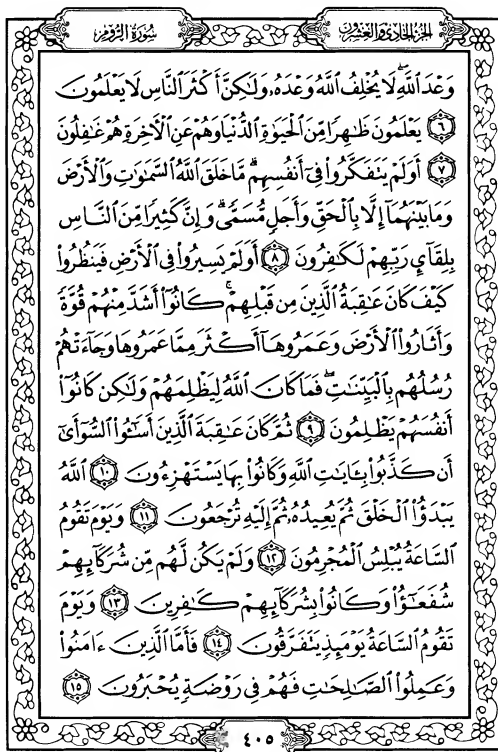 الجزء الحادي والعشرون
سُورَةُ الرُّومِ
وَعْدَ ٱللَّهِۖ لَا يُخْلِفُ ٱللَّهُ وَعْدَهُۥ وَلَٰكِنَّ أَكْثَرَ ٱلنَّاسِ لَا يَعْلَمُونَ
﴿٦﴾ يَعْلَمُونَ ظَٰهِرًا مِّنَ ٱلْحَيَوٰةِ ٱلدُّنْيَا وَهُمْ عَنِ ٱلْءَاخِرَةِ هُمْ غَٰفِلُونَ
﴿٧﴾ أَوَلَمْ يَتَفَكَّرُوا۟ فِىٓ أَنفُسِهِمۗ مَّا خَلَقَ ٱللَّهُ ٱلسَّمَٰوَٰتِ وَٱلْأَرْضَ
وَمَا بَيْنَهُمَآ إِلَّا بِٱلْحَقِّ وَأَجَلٍ مُّسَمًّىۗ وَإِنَّ كَثِيرًا مِّنَ ٱلنَّاسِ
بِلِقَآئِ رَبِّهِمْ لَكَٰفِرُونَ ﴿٨﴾ أَوَلَمْ يَسِيرُوا۟ فِى ٱلْأَرْضِ فَيَنظُرُوا۟
كَيْفَ كَانَ عَٰقِبَةُ ٱلَّذِينَ مِن قَبْلِهِمْۚ كَانُوٓا۟ أَشَدَّ مِنْهُمْ قُوَّةً
وَأَثَارُوا۟ ٱلْأَرْضَ وَعَمَرُوهَآ أَكْثَرَ مِمَّا عَمَرُوهَا وَجَآءَتْهُمْ
رُسُلُهُم بِٱلْبَيِّنَٰتِۖ فَمَا كَانَ ٱللَّهُ لِيَظْلِمَهُمْ وَلَٰكِن كَانُوٓا۟
أَنفُسَهُمْ يَظْلِمُونَ ﴿٩﴾ ثُمَّ كَانَ عَٰقِبَةَ ٱلَّذِينَ أَسَٰٓـُٔوا۟ ٱلسُّوٓأَىٰٓ
أَن كَذَّبُوا۟ بِـَٔايَٰتِ ٱللَّهِ وَكَانُوا۟ بِهَا يَسْتَهْزِءُونَ ﴿١٠﴾ ٱللَّهُ
يَبْدَؤُا۟ ٱلْخَلْقَ ثُمَّ يُعِيدُهُۥ ثُمَّ إِلَيْهِ تُرْجَعُونَ ﴿١١﴾ وَيَوْمَ تَقُومُ
ٱلسَّاعَةُ يُبْلِسُ ٱلْمُجْرِمُونَ ﴿١٢﴾ وَلَمْ يَكُن لَّهُم مِّن شُرَكَآئِهِمْ
شُفَعَٰٓؤُا۟ وَكَانُوا۟ بِشُرَكَآئِهِمْ كَٰفِرِينَ ﴿١٣﴾ وَيَوْمَ
تَقُومُ ٱلسَّاعَةُ يَوْمَئِذٍ يَتَفَرَّقُونَ ﴿١٤﴾ فَأَمَّا ٱلَّذِينَ ءَامَنُوا۟
وَعَمِلُوا۟ ٱلصَّٰلِحَٰتِ فَهُمْ فِى رَوْضَةٍ يُحْبَرُونَ ﴿١٥﴾
٤٠٥